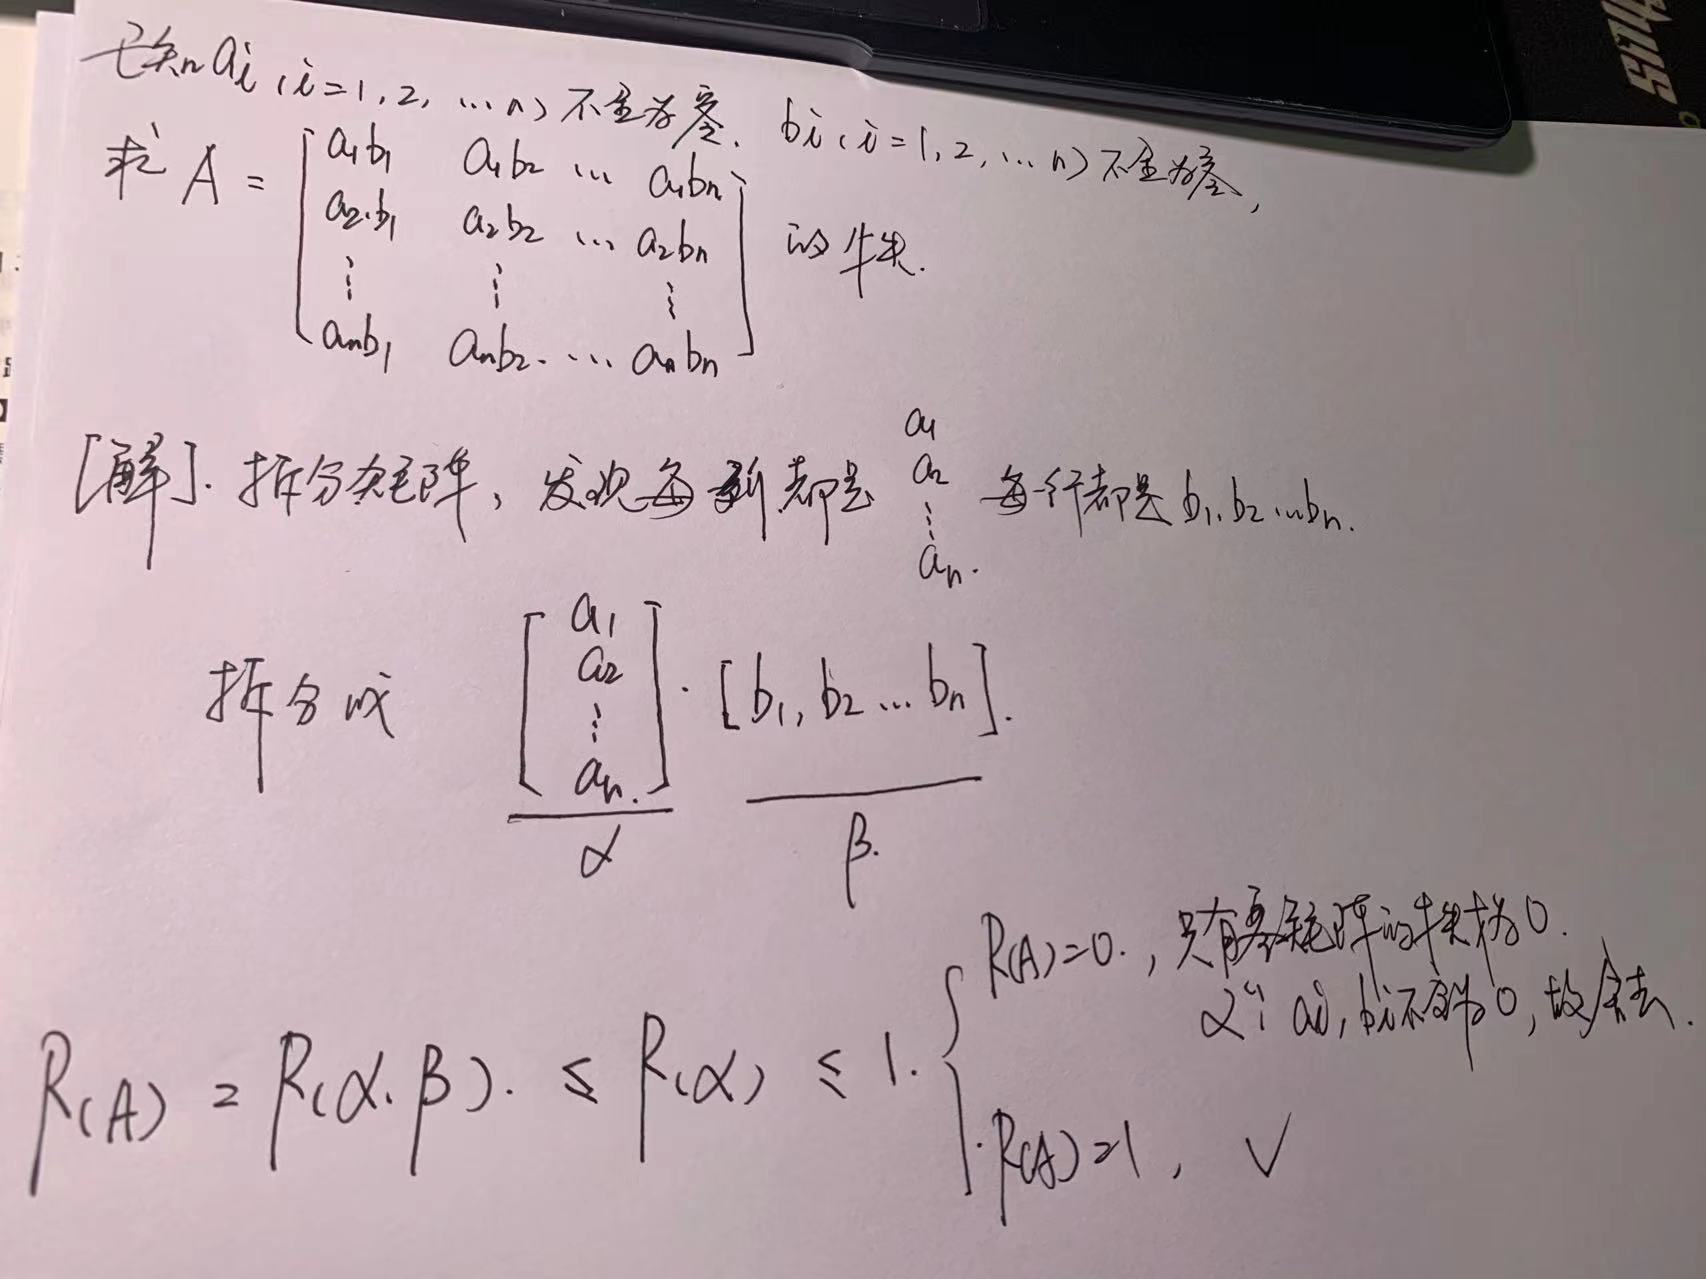 已知 ai (i=1,2,…n) 不全为零. bi (i=1,2,…n) 不全为零,
求 A = [ a1b1 a1b2 … a1bn
a2b1 a2b2 … a2bn
⋮ ⋮ ⋮
anb1 anb2 … anbn ] 的秩.
[解]. 拆分矩阵, 发现每列都是 a1 a2 ⋮ an. 每行都是 b1, b2 … bn.
拆分成 [ a1 a2 ⋮ an. ] · [b1, b2 … bn].
α β.
R(A)=0., 只有零矩阵的秩才为0.
∵ ai, bi不全为0, 故舍去.
R(A) = R(α·β). ≤ R(α) ≤ 1.
R(A)=1, ✓